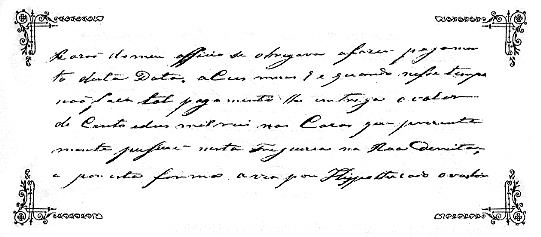 do meu officio se obrigava afazer pagamen
to desta Data, a seis mezes e quando neste tempo
não faça tal pagamento lhe entrega o valor
de Cento e mil reis nas Cazas que prezente
mente pussue nesta Freguezia na Rua Direita,
e por esta forma avia por Hypothecado o valor